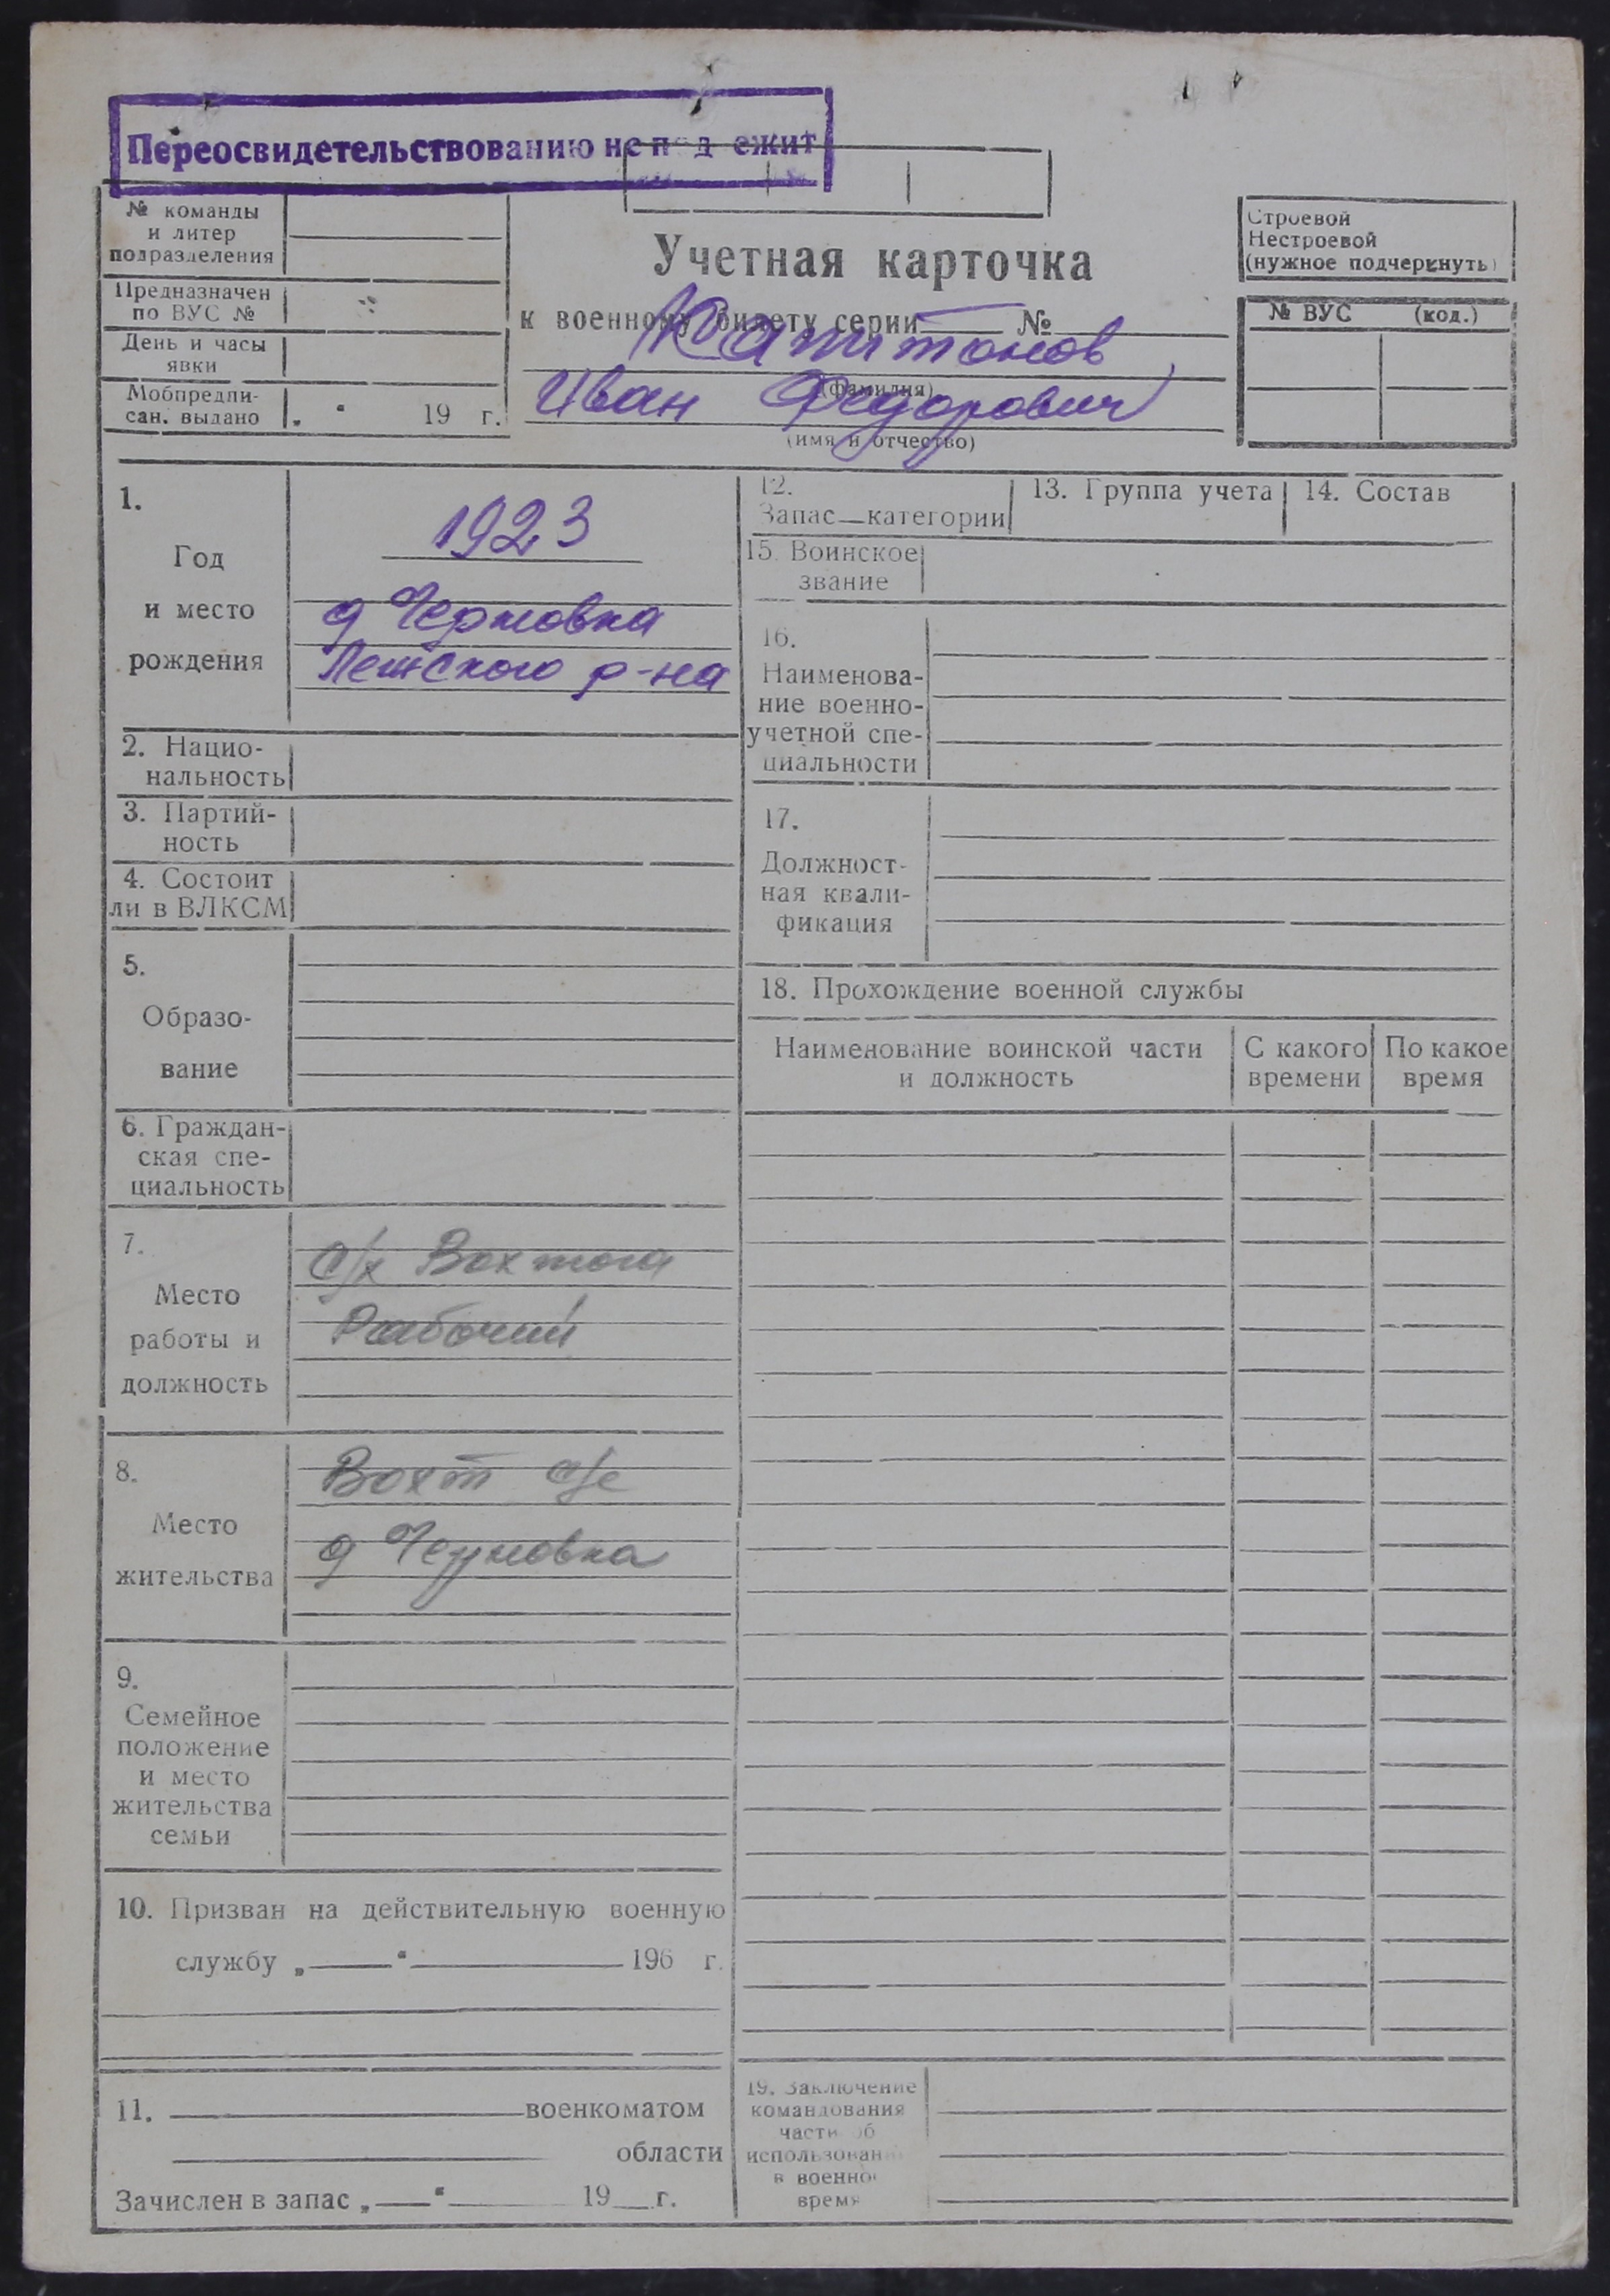 Переосвидетельствованию не подлежит
№ команды
и литер
подразделения
Предназначен
по ВУС №
День и часы
явки
Мобпредпи-
сан. выдано „ “ 19 г.
Учетная карточка
к военному билету серии № 
Капитонов
(фамилия)
Иван Федорович
(имя и отчество)
Строевой
Нестроевой
(нужное подчеркнуть)
№ ВУС (код.)
1.
Год
и место
рождения
1923
д Черновка
Лежского р-на
2. Нацио-
нальность
3. Партий-
ность
4. Состоит
ли в ВЛКСМ
5.
Образо-
вание
6. Граждан-
ская спе-
циальность
7.
Место
работы и
должность
с/х Вохтога
Рабочий
8.
Место
жительства
Вохт с/с
д Черновка
9.
Семейное
положение
и место
жительства
семьи
10. Призван на действительную военную
службу „ “ 196 г.
11. военкоматом
области
Зачислен в запас „ “ 19 г.
12.
Запас—категории
13. Группа учета
14. Состав
15. Воинское
звание
16.
Наименова-
ние военно-
учетной спе-
циальности
17.
Должност-
ная квали-
фикация
18. Прохождение военной службы
Наименование воинской части
и должность
С какого
времени
По какое
время
19. Заключение
командования
части об
использован
в военное
время